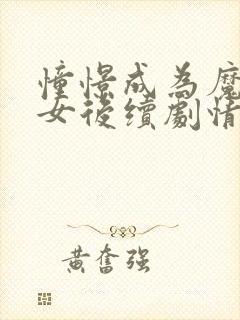 憧憬成為魔
女後續劇情
黃奮强